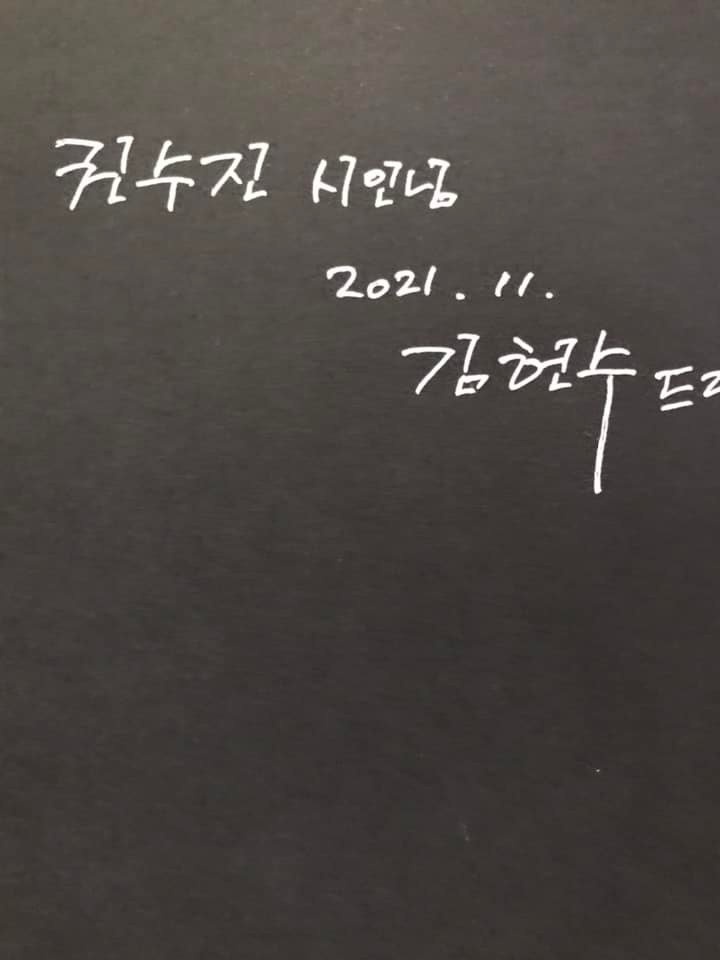 권수진 시인님
2021. 11.
김현수 드